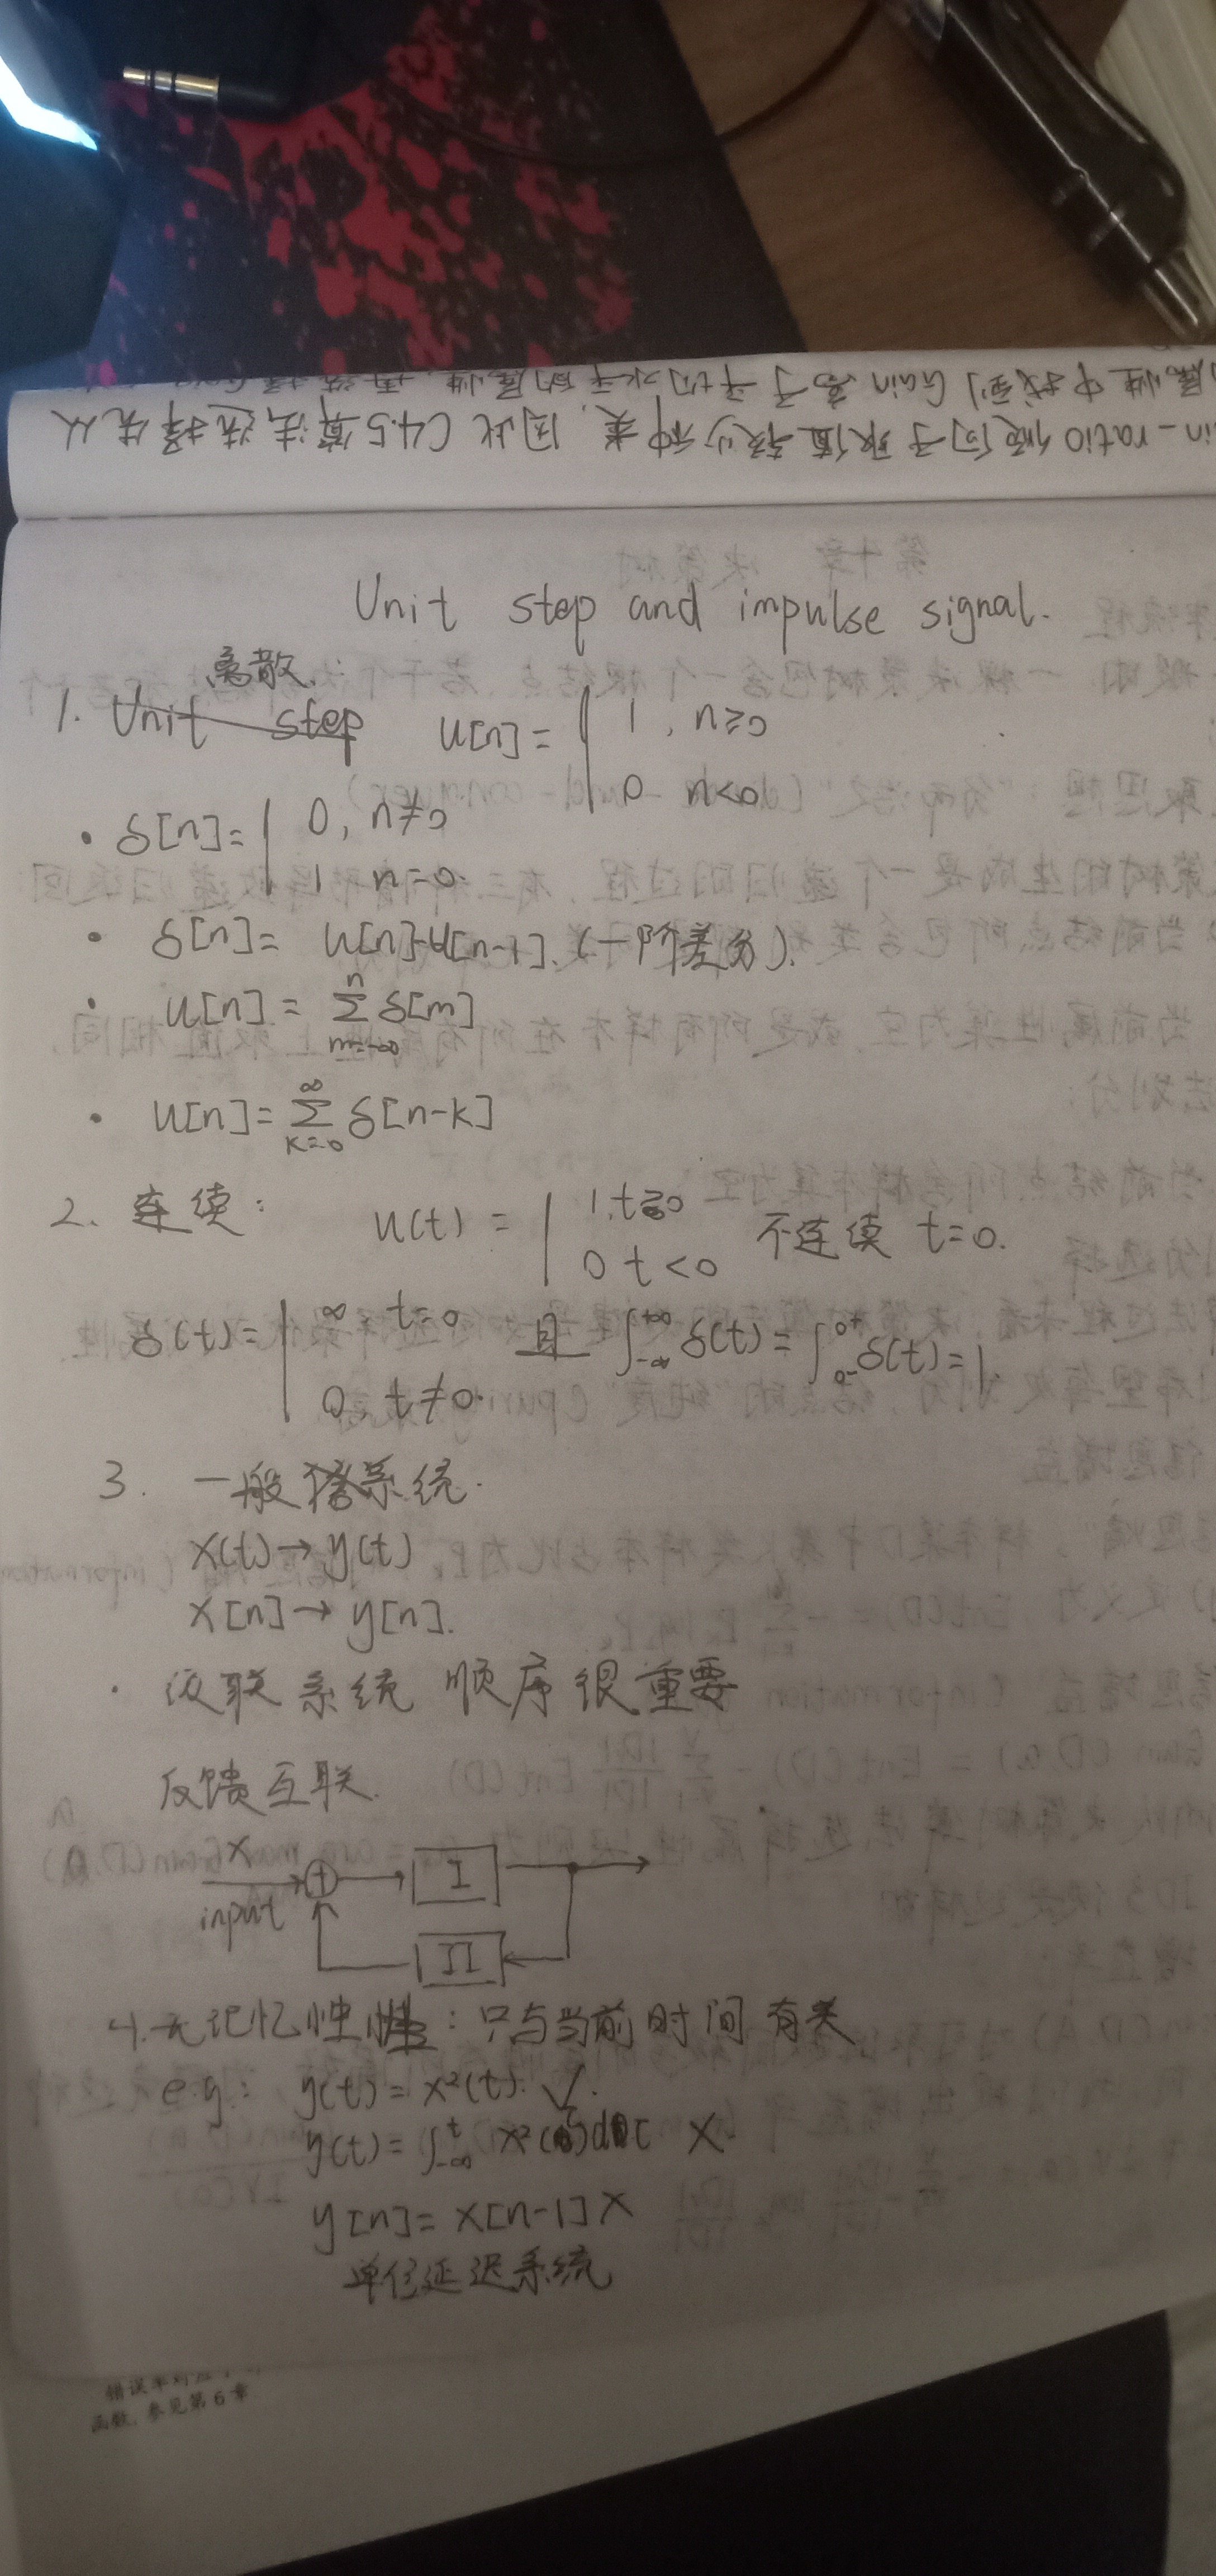 in-ratio 倾向于取值较少种类, 因此 C4.5算法选择先从
属性中找到 Gain 高于平均水平的属性, 再选择
Unit step and impulse signal.
离散:
1. Unit step u[n] = { 1, n≥0
0 n<0
· δ[n] = { 0, n≠0
1 n=0.
· δ[n] = u[n]-u[n-1]. (一阶差分).
· u[n] = Σ_{m=-∞}^{n} δ[m]
· u[n] = Σ_{k=0}^{∞} δ[n-k]
2. 连续: u(t) = { 1, t≥0
0 t<0 不连续 t=0.
δ(t) = { ∞, t=0 且 ∫_{-∞}^{+∞} δ(t) = ∫_{0-}^{0+} δ(t) = 1.
0, t≠0.
3. 一般系统.
x(t) → y(t)
x[n] → y[n].
· 级联系统 顺序很重要
反馈互联.
x
input
+
I
II
4. 无记忆性: 只与当前时间有关
e.g: y(t) = x²(t). √.
y(t) = ∫_{-∞}^{t} x²(τ)dτ ×
y[n] = x[n-1] ×
单位延迟系统
函数, 参见第 6 章